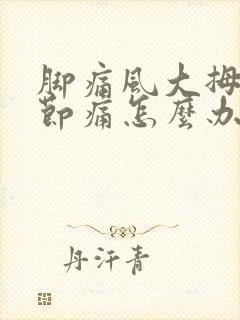 脚痛風大拇
節痛怎麼办
丹汗青